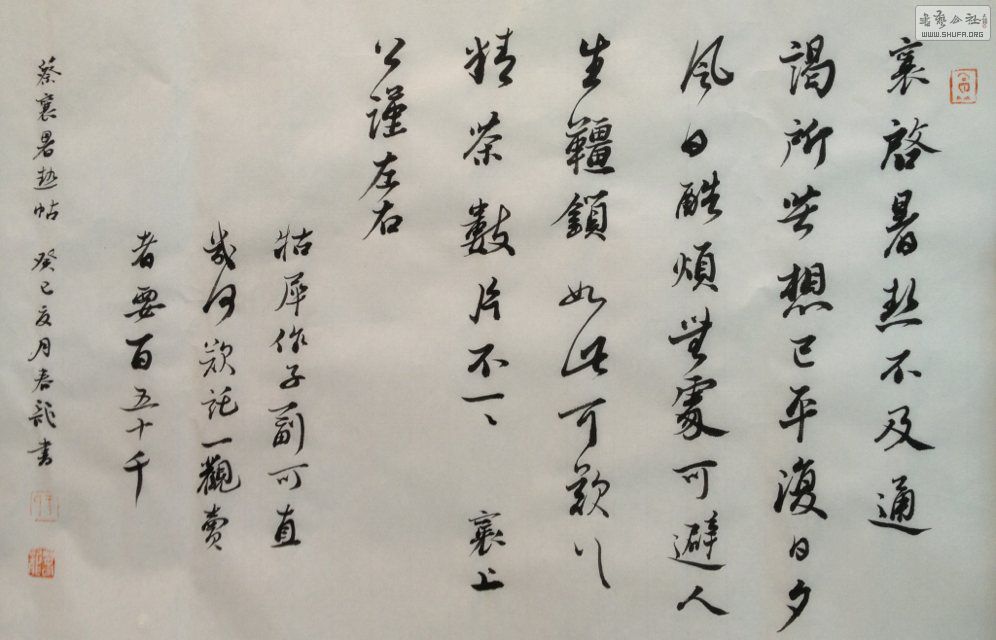 襄啓暑热不及通
謁所苦想已平復日夕
風日酷煩無處可避人
生韁鎖如此可歎〻
精茶數片不一〻 襄上
公謹左右
牯犀作子一副可直
幾何欲託一觀賣
者要百五十千
蔡襄暑热帖 癸巳亥月春龍書
書藝公社
WWW.SHUFA.ORG